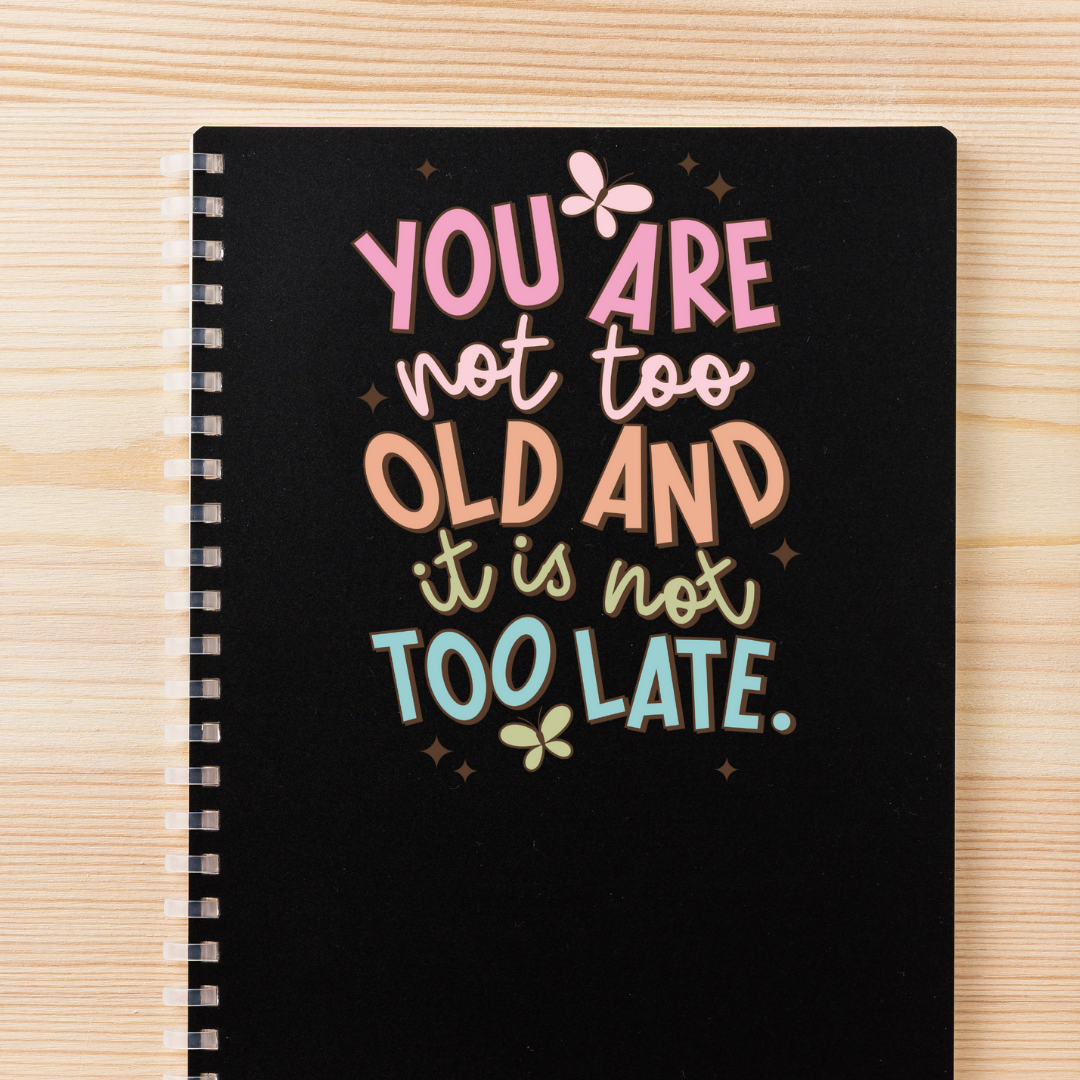 YOU ARE
not too
OLD AND
it is not
TOO LATE.